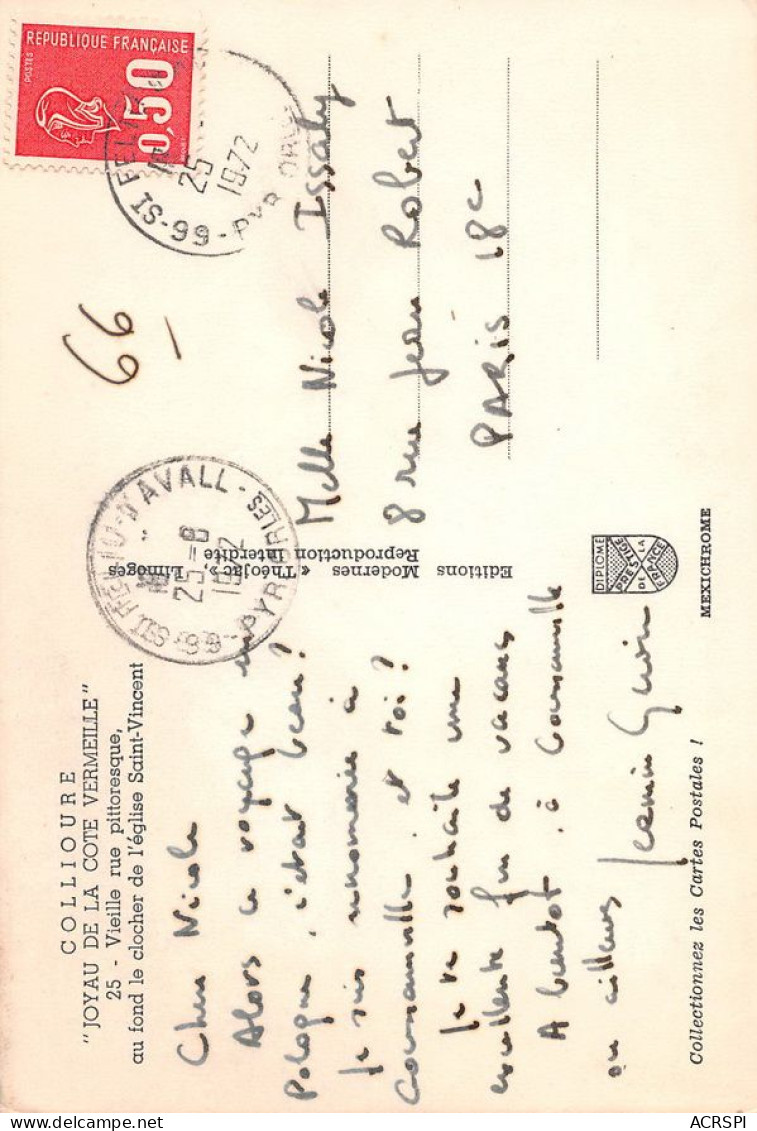 COLLIOURE
"JOYAU DE LA COTE VERMEILLE"
25 - Vieille rue pittoresque,
au fond le clocher de l'église Saint-Vincent
Chère Nicole
Alors ce voyage en
Pologne, c'était beau ?
Je suis renommée à
Courcouronnes et toi ?
Je te souhaite une
excellente fin de vacances
A bientôt, à
ou ailleurs
Collectionnez les Cartes Postales !
Editions Modernes « Théojac », Limoges
Reproduction Interdite
DIPLOME
PRESTIGE
DE LA
FRANCE
MEXICHROME
REPUBLIQUE FRANÇAISE
POSTES
0,50
25 -
1972
IS-99 - PYR ORLES
D'AVALL -
25 - 8
1972
PYR ORLES
66
Melle Nicole Issaly
8 rue Jean Robert
PARIS 18e
ACRSPI